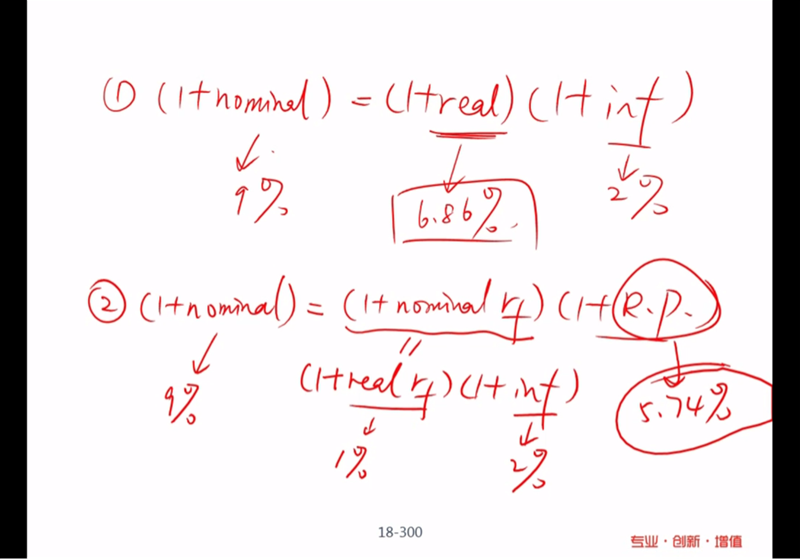 ① (1+nominal) = (1+real)(1+inf)
9% 6.86% 2%
② (1+nominal) = (1+nominal rf)(1+R.P.)
9% (1+real rf)(1+inf) 5.74%
1% 2%
18-300
专业·创新·增值